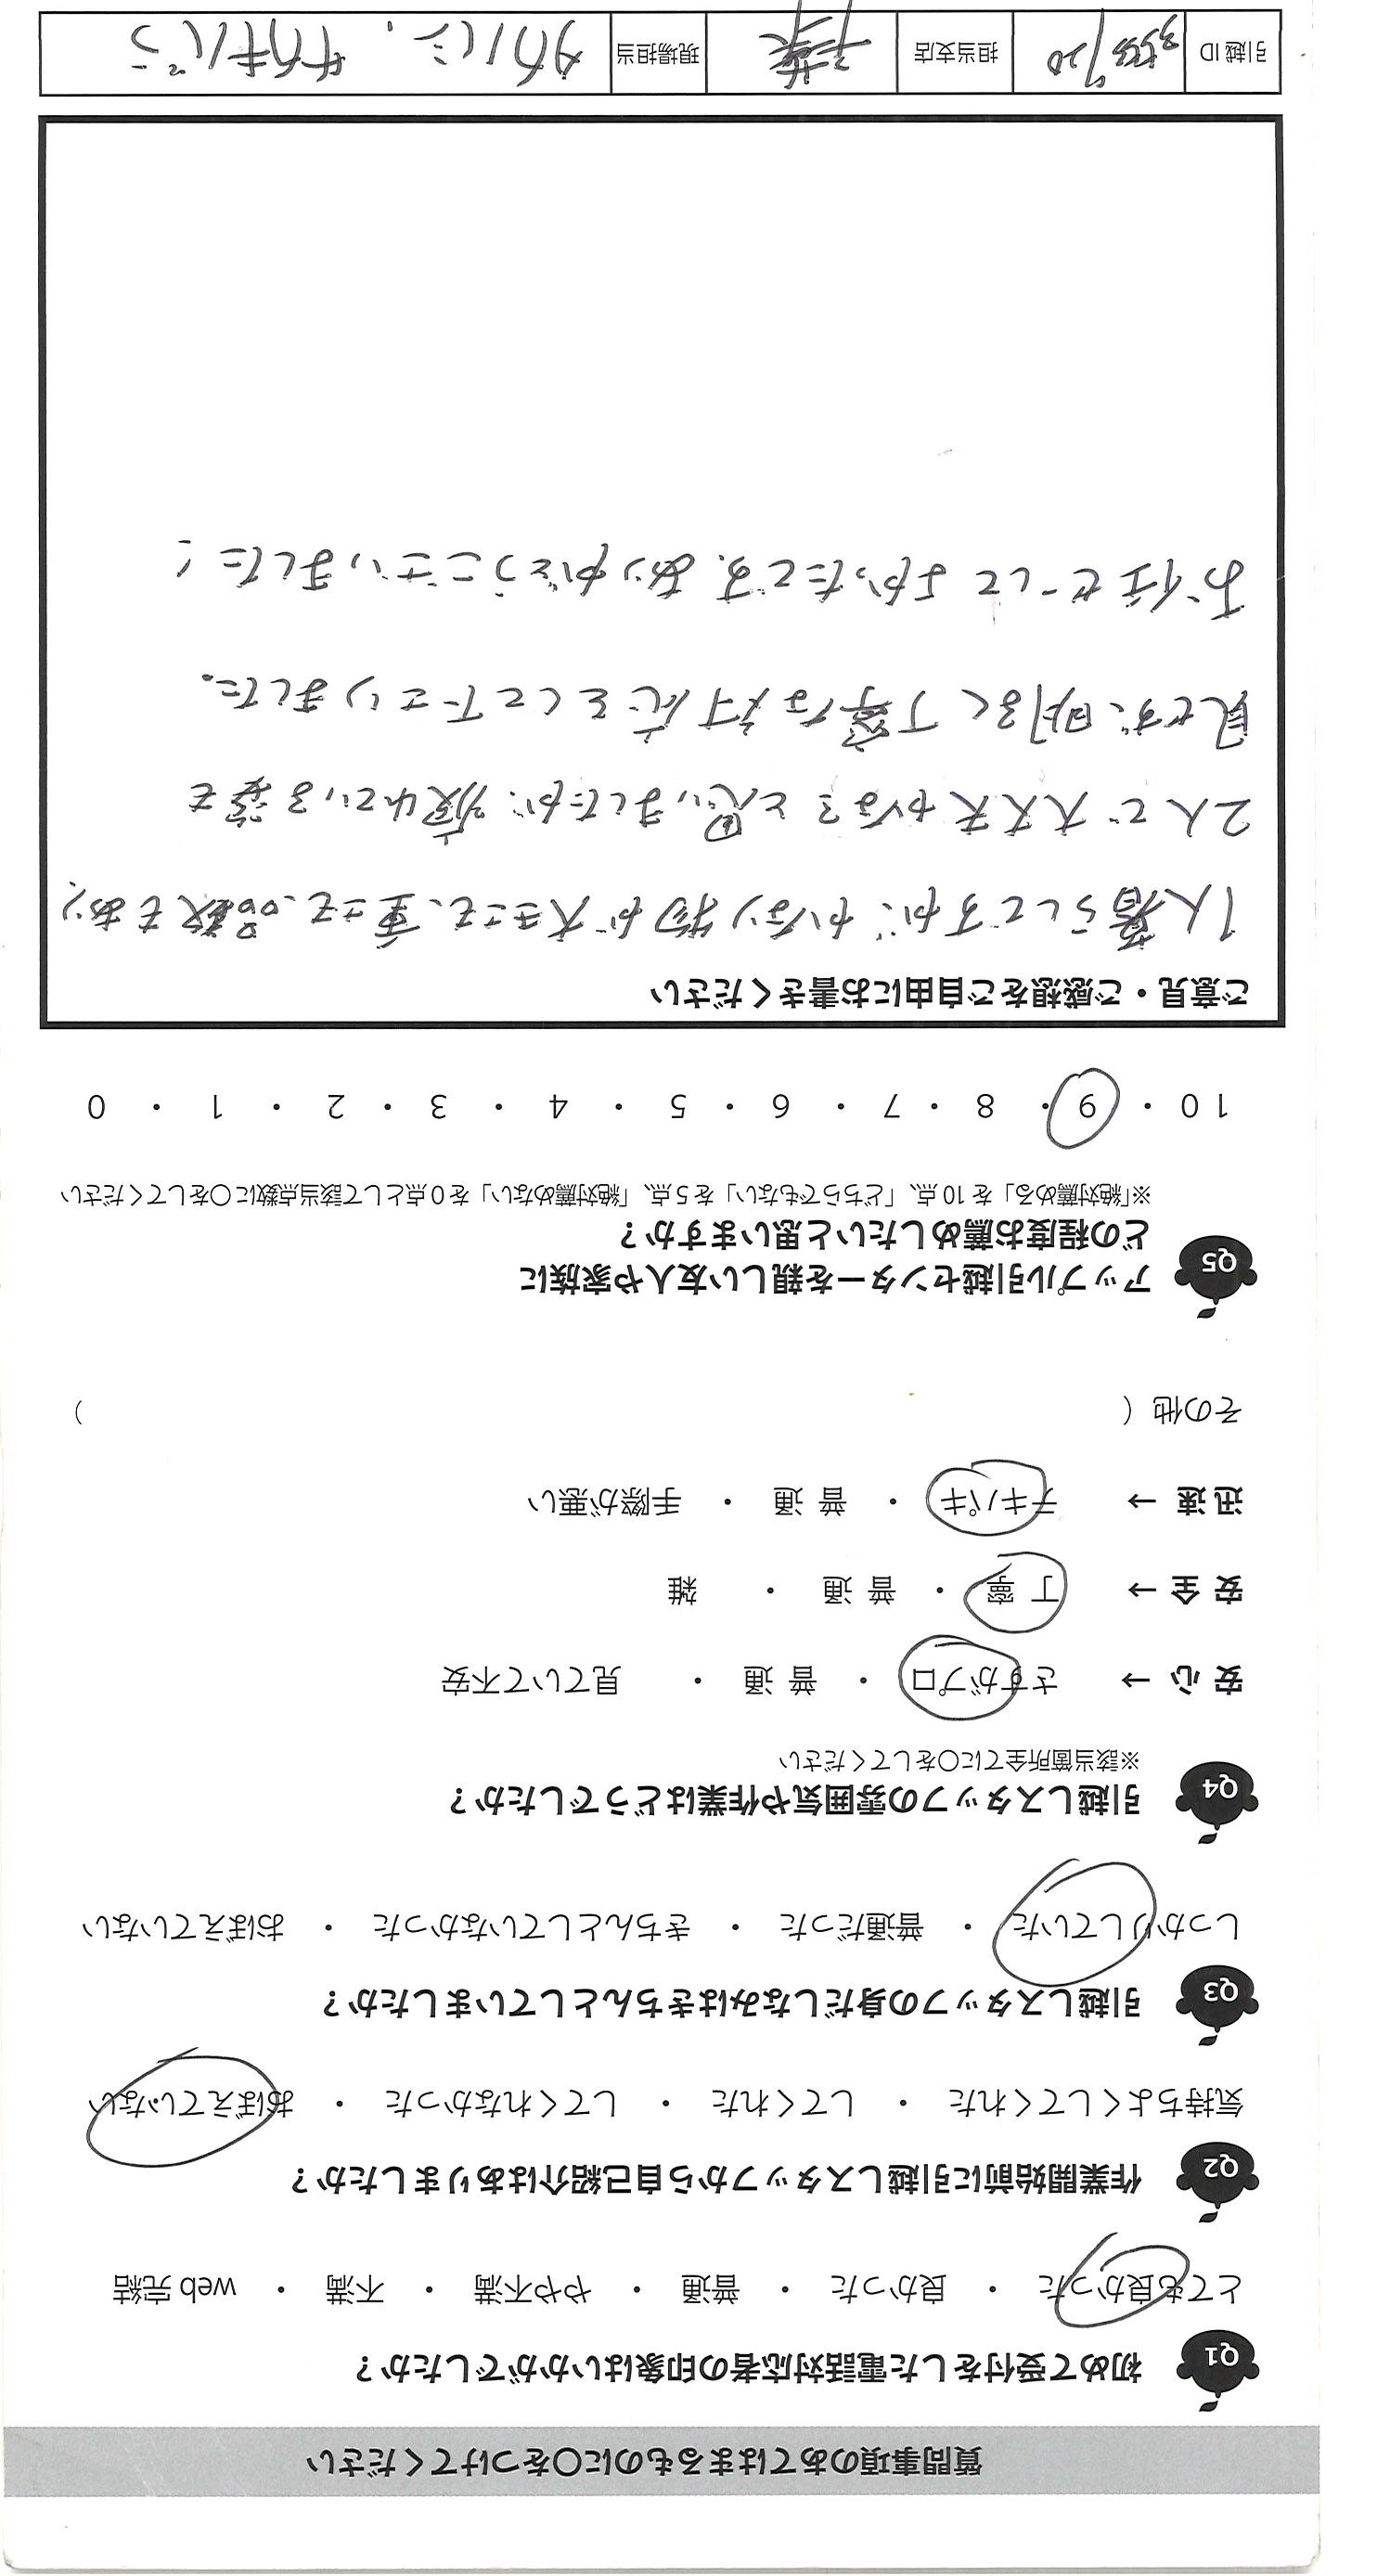 質問事項のあてはまるものに○をつけてください
Q1 初めて受付をした電話対応者の印象はいかがでしたか？
とても良かった ・ 良かった ・ 普通 ・ やや不満 ・ 不満 ・ web完結
Q2 作業開始前に引越しスタッフから自己紹介はありましたか？
気持ちよくしてくれた ・ してくれた ・ してくれなかった ・ おぼえていない
Q3 引越しスタッフの身だしなみはきちんとしていましたか？
しっかりしていた ・ 普通だった ・ きちんとしていなかった ・ おぼえていない
Q4 引越しスタッフの雰囲気や作業はどうでしたか？
※該当箇所全てに○をしてください
安心 → さすがプロ ・ 普通 ・ 見ていて不安
安全 → 丁寧 ・ 普通 ・ 雑
迅速 → テキパキ ・ 普通 ・ 手際が悪い
その他（ ）
Q5 アップル引越センターを親しい友人や家族に
どの程度お薦めしたいと思いますか？
※「絶対薦める」を10点、「どちらでもない」を5点、「絶対薦めない」を0点として該当点数に○をしてください
10 ・ 9 ・ 8 ・ 7 ・ 6 ・ 5 ・ 4 ・ 3 ・ 2 ・ 1 ・ 0
ご意見・ご感想をご自由にお書きください
1人暮らしですが、かなり物が大きさも、重さも、品数もあり、
2人で大丈夫かな？と思いましたが、疲れている姿も
見せず、明るく丁寧な対応をして下さりました。
お任せしてよかったです。ありがとうございました！
引越ID 担当支店 千葉 現場担当